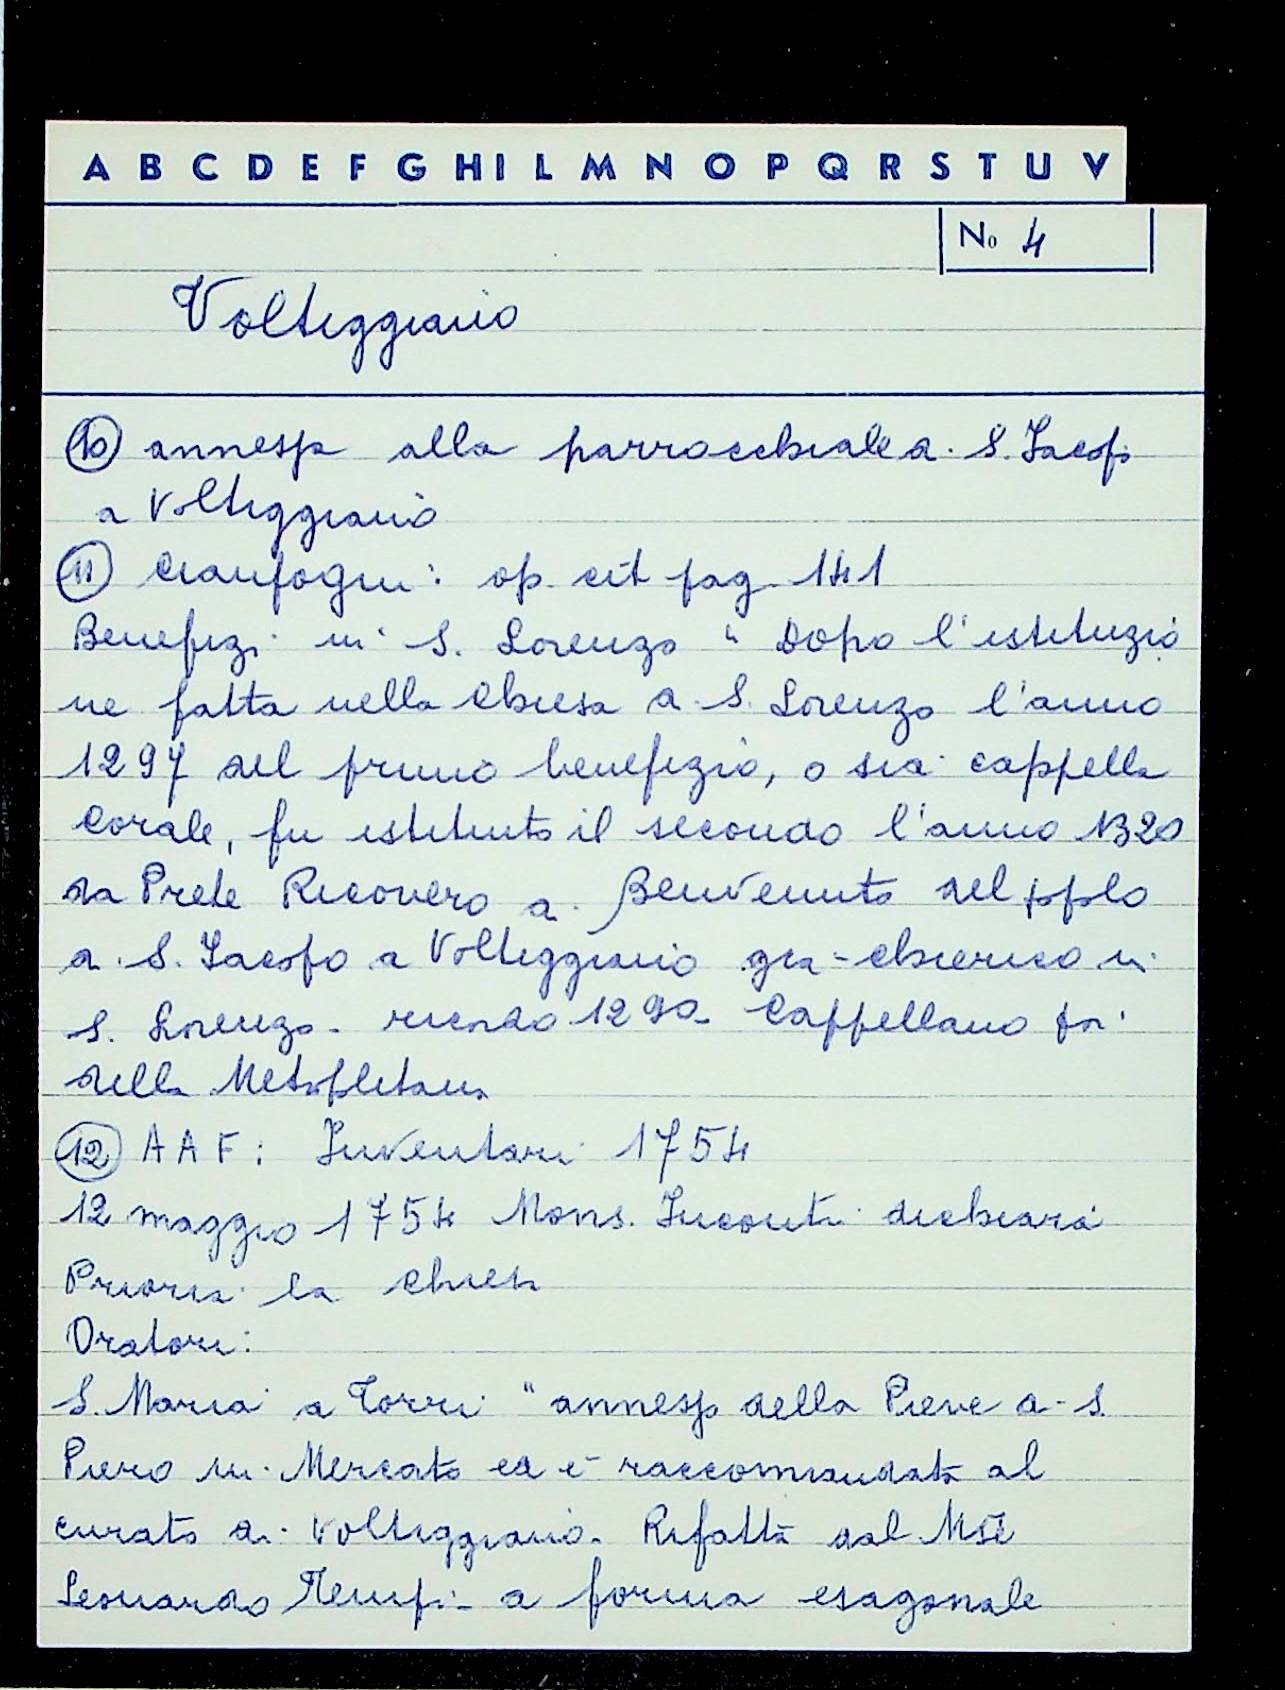 A B C D E F G H I L M N O P Q R S T U V
No 4
Volteggiano
10 annessa alla parrocchiale di S. Jacopo
a Volteggiano
11 Cianfogni: op. cit pag. 141
Benefizi in S. Lorenzo " Dopo l'istituzio
ne fatta nella Chiesa di S. Lorenzo l'anno
1297 del primo benefizio, o sia cappella
Corale, fu istituito il secondo l'anno 1320
da Prete Ricovero di Benvenuto del popolo
di S. Jacopo a Volteggiano già chierico in
S. Lorenzo - 1290 Cappellano poi
della Metropolitana
12 A A F: Inventari 1754
12 maggio 1754 Mons. Incontri dichiara
Prioria la Chiesa
Oratori:
S. Maria a Torri " annesso della Pieve di S.
Piero in Mercato ed è raccomandata al
curato di Volteggiano. Rifatta dal Mse
Leonardo Tempi - a forma esagonale